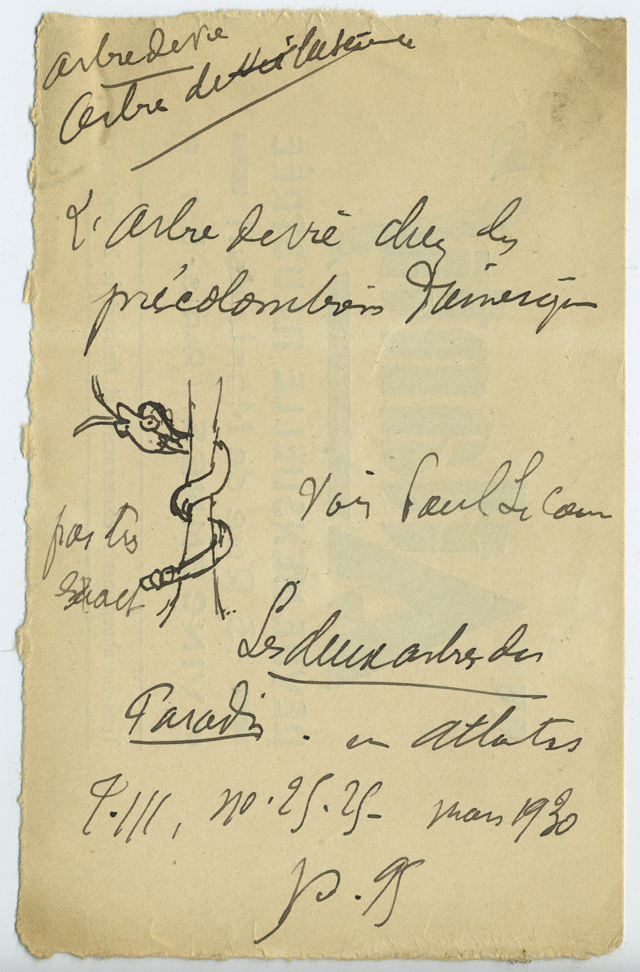 Arbre de vie
Arbre de
L'Arbre de vie chez les
précolombiens d'Amérique
Voir Paul Le Cour
pas très
exact
Les deux arbres du
Paradis. in Atlantis
T. III, no. 25. 25- mars 1930
p. 95